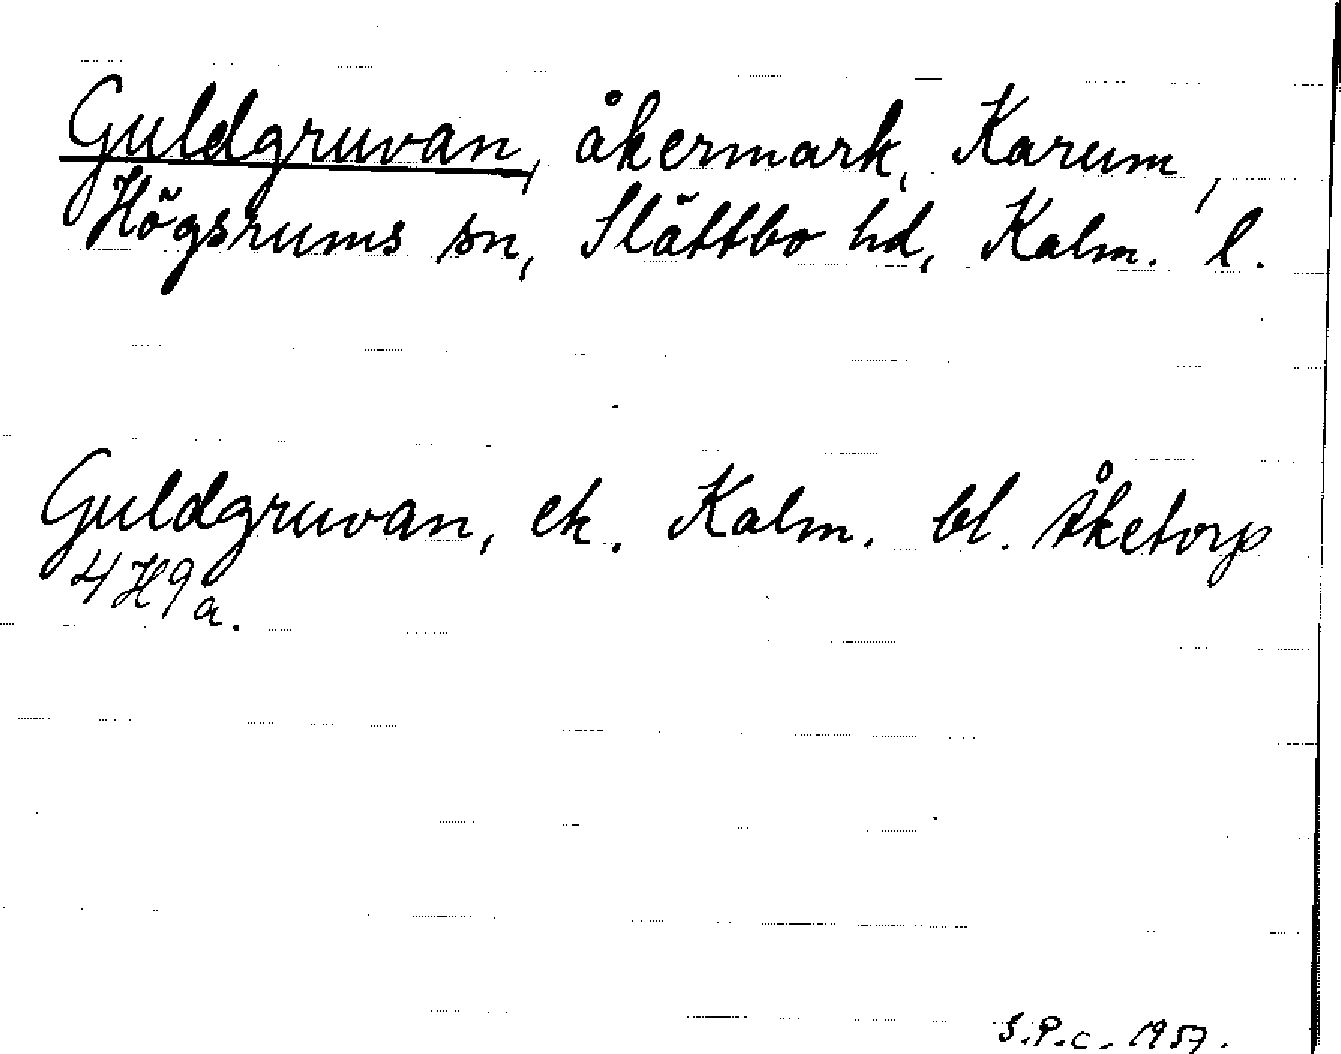 Guldgruvan, åkermark, Karum,
Högsrums sn, Slättbo hd, Kalm. l.
Guldgruvan, ek. Kalm. bl. Åketorp
4H9a.
S.P.c. 1957.